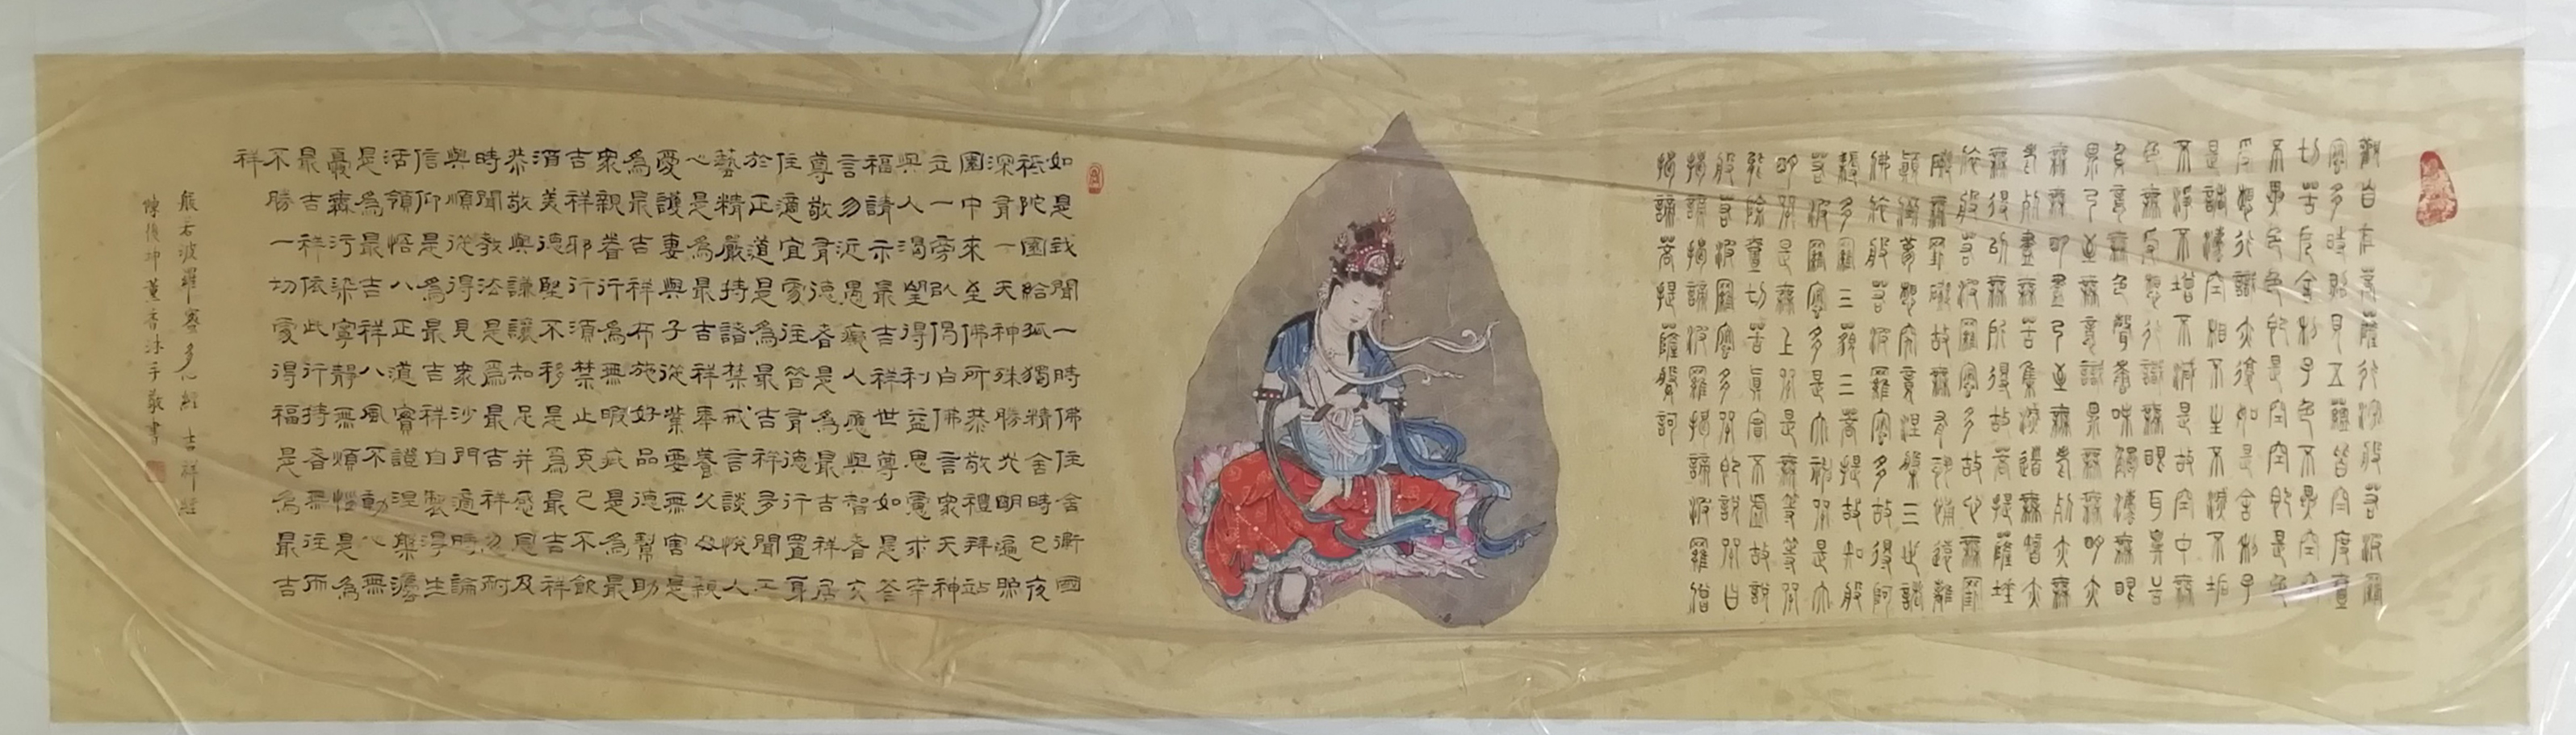 觀自在菩薩行深般若波羅
蜜多時照見五蘊皆空度壹
切苦厄舍利子色不異空空
不異色色即是空空即是色
受想行識亦復如是舍利子
是諸法空相不生不滅不垢
不淨不增不減是故空中無
色無受想行識無眼耳鼻舌
身意無色聲香味觸法無眼
界乃至無意識界無無明亦
無無明盡乃至無老死亦無
老死盡無苦集滅道無智亦
無得以無所得故菩提薩埵
依般若波羅蜜多故心無罣
礙無罣礙故無有恐怖遠離
顛倒夢想究竟涅槃三世諸
佛依般若波羅蜜多故得阿
耨多羅三藐三菩提故知般
若波羅蜜多是大神咒是大
明咒是無上咒是無等等咒
能除壹切苦真實不虛故說
般若波羅蜜多咒即說咒曰
揭諦揭諦波羅揭諦波羅僧
揭諦菩提薩婆訶
如是我聞一時佛住舍衛國
祇陀園給孤獨精舍時已夜
深有一天神殊勝光明遍照
園中來至佛所恭敬禮拜站
立一旁以偈白佛言家天神
與人渴望得利益思慮求幸
福請示最吉祥世尊如是答
言勿近愚癡人應與智者交
尊敬有德者是為最吉祥居
住適宜處往昔有德行置身
於正道是為最吉祥多聞工
藝精嚴持諸禁戒言談悅人
心是為最吉祥奉養父母親
愛護妻與子從業要無害是
為最吉祥布施好品德幫助
眾親眷行為無瑕疵是為最
吉祥邪行須禁止克己不飲
酒美德堅不移是為最吉祥
恭敬與謙讓知足并感恩及
時聞教法是為最吉祥忍耐
與順從得見眾沙門適時論
信仰是為最吉祥自製淨生
活領悟八正道實證涅槃法
是為最吉祥八風不動心無
憂無污染寧靜無煩惱是為
最吉祥依此行持者無往而
不勝一切處得福是為最吉
祥
般若波羅蜜多心經 吉祥經
陳復坤薰香沐手敬書